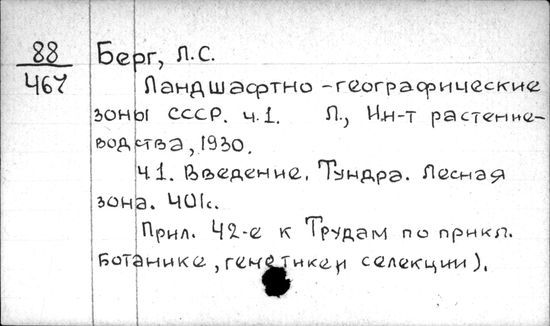 88
467
Берг, Л.С.
Ландшафтно-географические
зоны СССР. ч.1. Л., Ин-т растение-
водства, 1930.
Ч1. Введение. Тундра. Лесная
зона. 401с.
Прил. 42-е к Трудам по прикл.
ботанике, генетике и селекции).